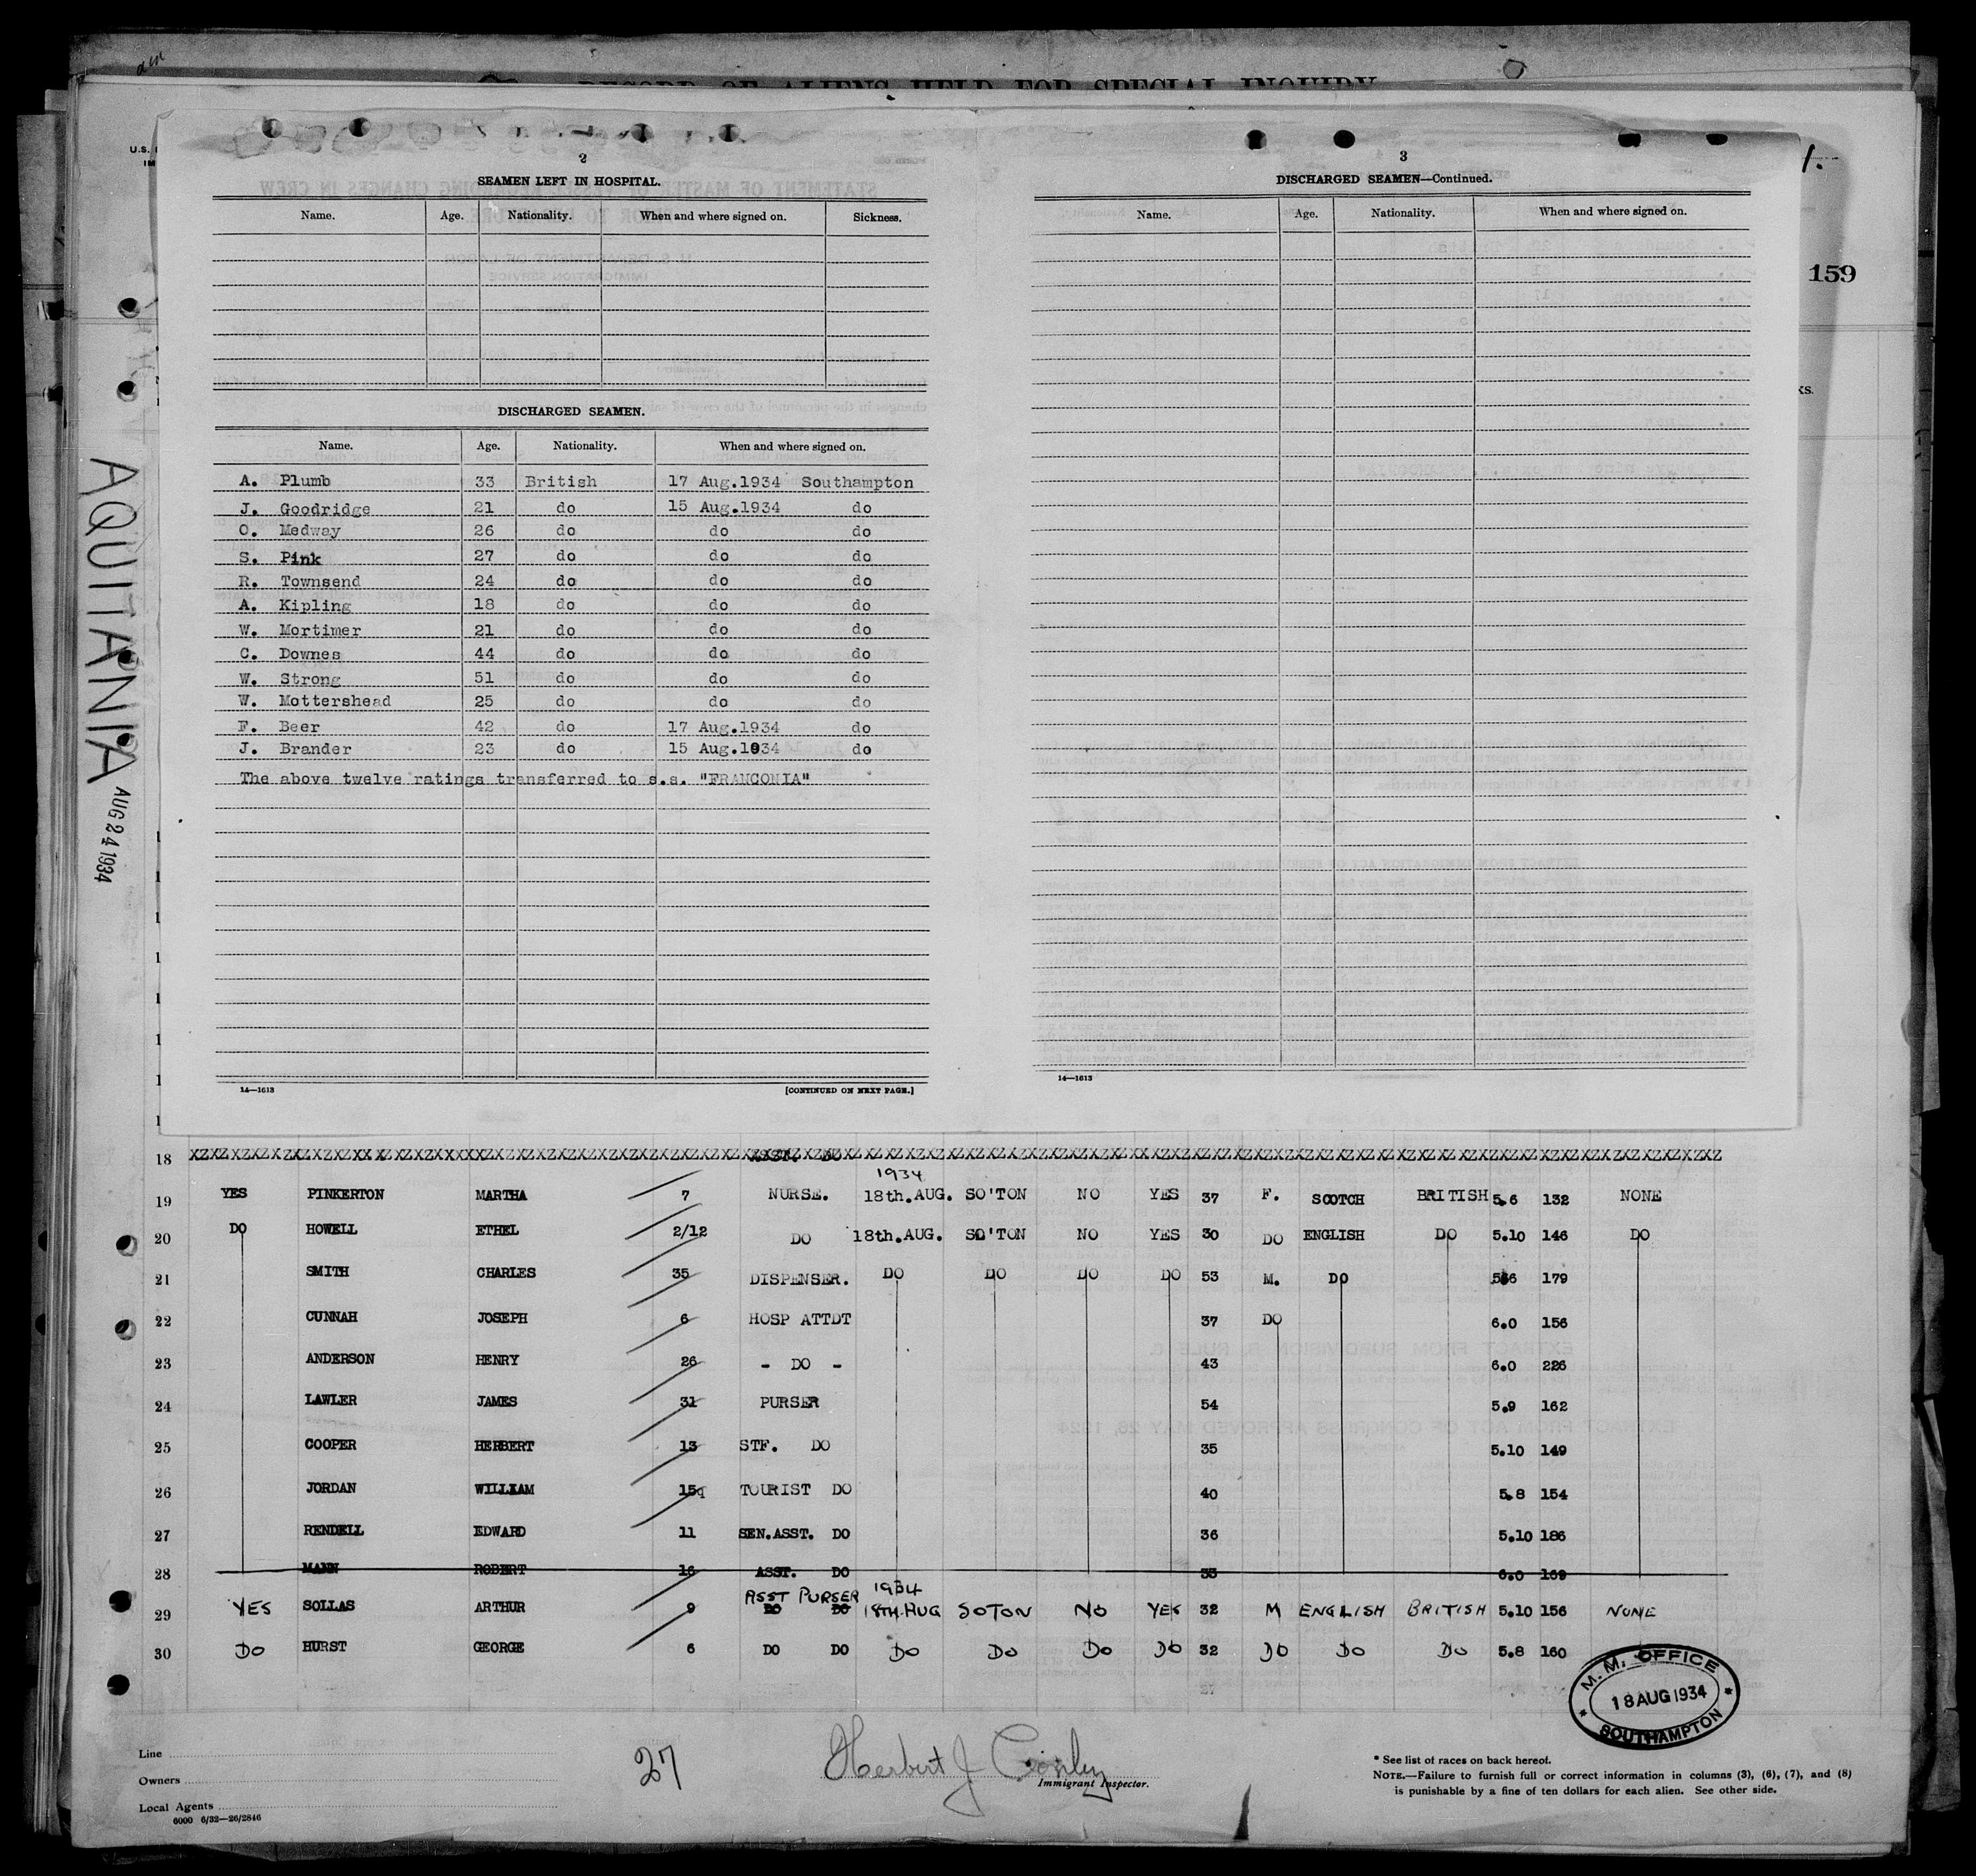 RECORD OF ALIENS HELD FOR SPECIAL INQUIRY
U.S.
IM
1.
159
KS.
AQUITANIA
AUG 24 1934
2
SEAMEN LEFT IN HOSPITAL.
Name. Age. Nationality. When and where signed on. Sickness.
DISCHARGED SEAMEN.
Name. Age. Nationality. When and where signed on.
A. Plumb 33 British 17 Aug.1934 Southampton
J. Goodridge 21 do 15 Aug.1934 do
O. Medway 26 do do do
S. Pink 27 do do do
R. Townsend 24 do do do
A. Kipling 18 do do do
W. Mortimer 21 do do do
C. Downes 44 do do do
W. Strong 51 do do do
W. Mottershead 25 do do do
F. Beer 42 do 17 Aug.1934 do
J. Brander 23 do 15 Aug.1934 do
The above twelve ratings transferred to s.s. "FRANCONIA"
14—1613 [CONTINUED ON NEXT PAGE.]
3
DISCHARGED SEAMEN—Continued.
Name. Age. Nationality. When and where signed on.
14—1613
18 ASST. DO
1934
19 YES PINKERTON MARTHA 7 NURSE. 18th.AUG. SO'TON NO YES 37 F. SCOTCH BRITISH 5.6 132 NONE
20 DO HOWELL ETHEL 2/12 DO 18th.AUG. SO'TON NO YES 30 DO ENGLISH DO 5.10 146 DO
21 SMITH CHARLES 35 DISPENSER. DO DO DO DO 53 M. DO 5.6 179
22 CUNNAH JOSEPH 6 HOSP ATTDT 37 DO 6.0 156
23 ANDERSON HENRY 26 - DO - 43 6.0 226
24 LAWLER JAMES 31 PURSER 54 5.9 162
25 COOPER HERBERT 13 STF. DO 35 5.10 149
26 JORDAN WILLIAM 15 TOURIST DO 40 5.8 154
27 RENDELL EDWARD 11 SEN.ASST. DO 36 5.10 186
28 MANN ROBERT 16 ASST. DO 33 6.0 169
ASST PURSER 1934
29 YES SOLLAS ARTHUR 9 DO DO 18TH.AUG SOTON NO YES 32 M ENGLISH BRITISH 5.10 156 NONE
30 DO HURST GEORGE 6 DO DO DO DO DO DO 32 DO DO DO 5.8 160
M.M. OFFICE
18 AUG 1934
SOUTHAMPTON
Line
Owners
Local Agents
6000 6/32—26/2846
27
Herbert J Conley
Immigrant Inspector.
* See list of races on back hereof.
NOTE.—Failure to furnish full or correct information in columns (3), (6), (7), and (8)
is punishable by a fine of ten dollars for each alien. See other side.